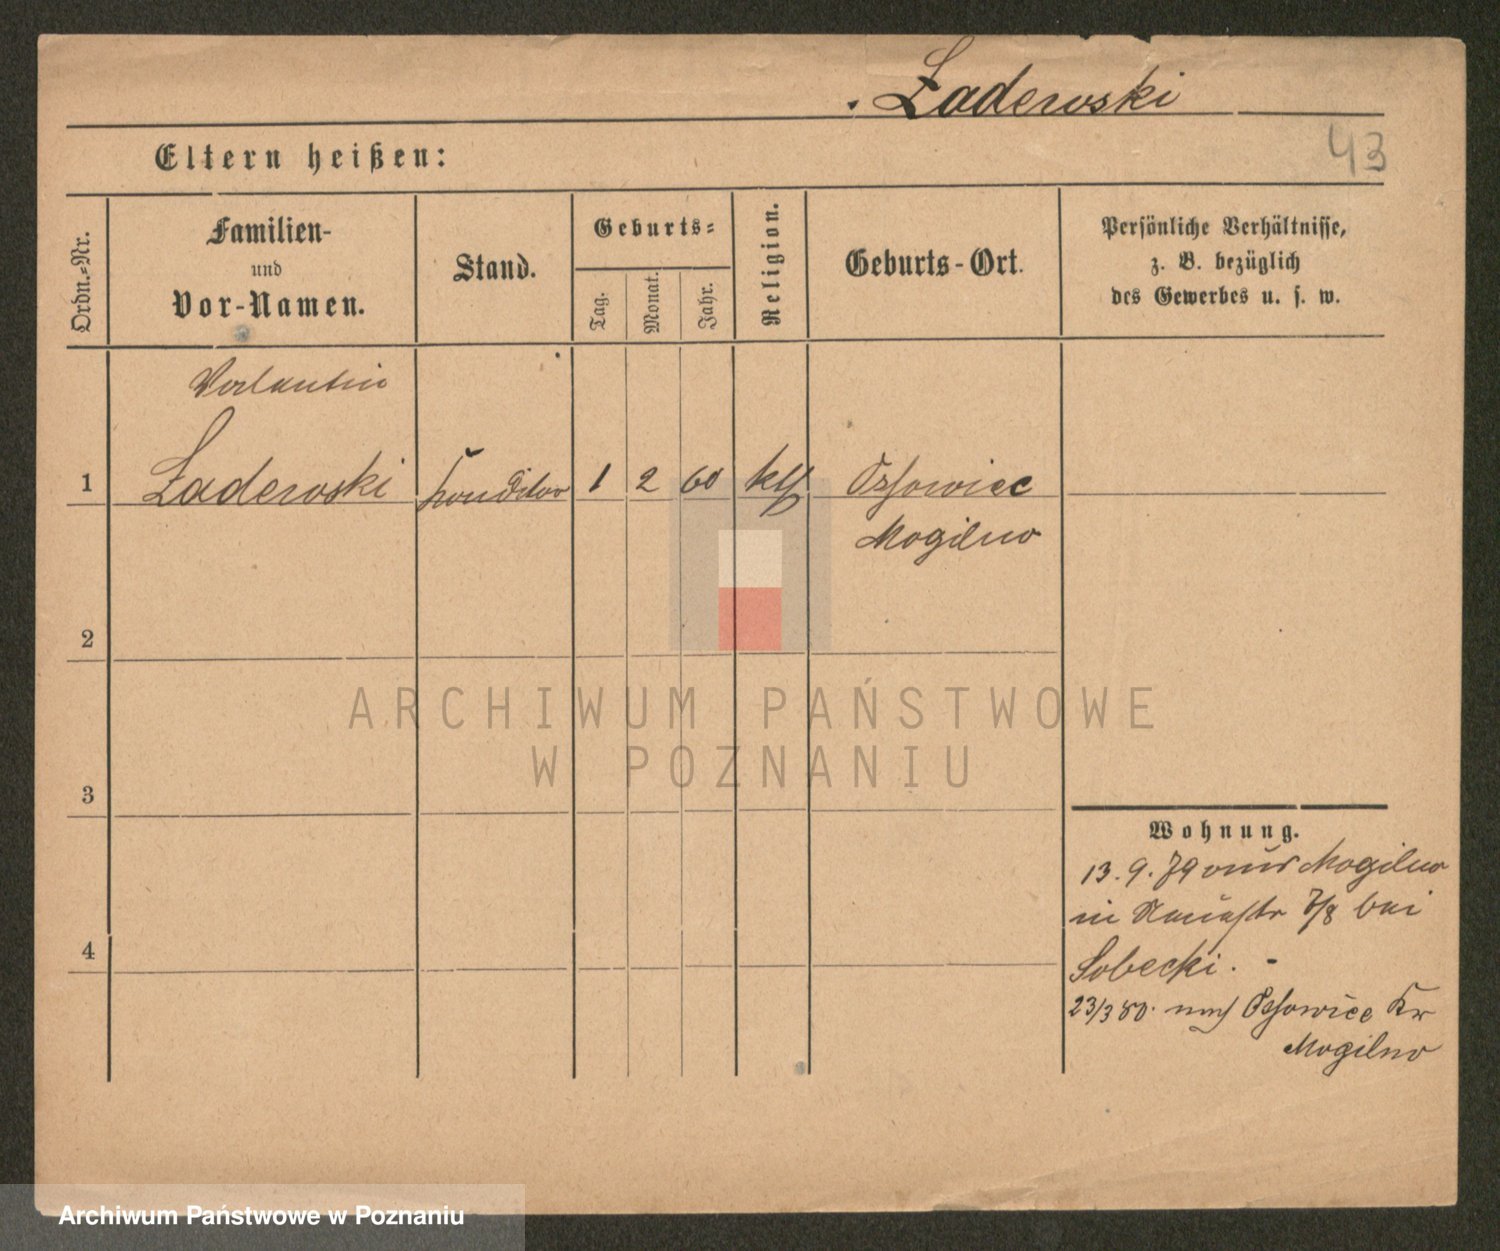 Ładewski
43
Eltern heißen:
Ordn.-Nr.
Familien-
und
Vor-Namen.
Stand.
Geburts-
Tag.
Monat.
Jahr.
Religion.
Geburts-Ort.
Persönliche Verhältnisse,
z. B. bezüglich
des Gewerbes u. s. w.
Valentin
1 Ładewski Konditor 1 2 60 kth Ossowiec
Mogilno
2
3
4
Wohnung.
13.9.79 aus Mogilno
in 7/8 bei
Sobecki. -
23/3 80. nach Ossowiec Kr
Mogilno
ARCHIWUM PAŃSTWOWE
W POZNANIU
Archiwum Państwowe w Poznaniu